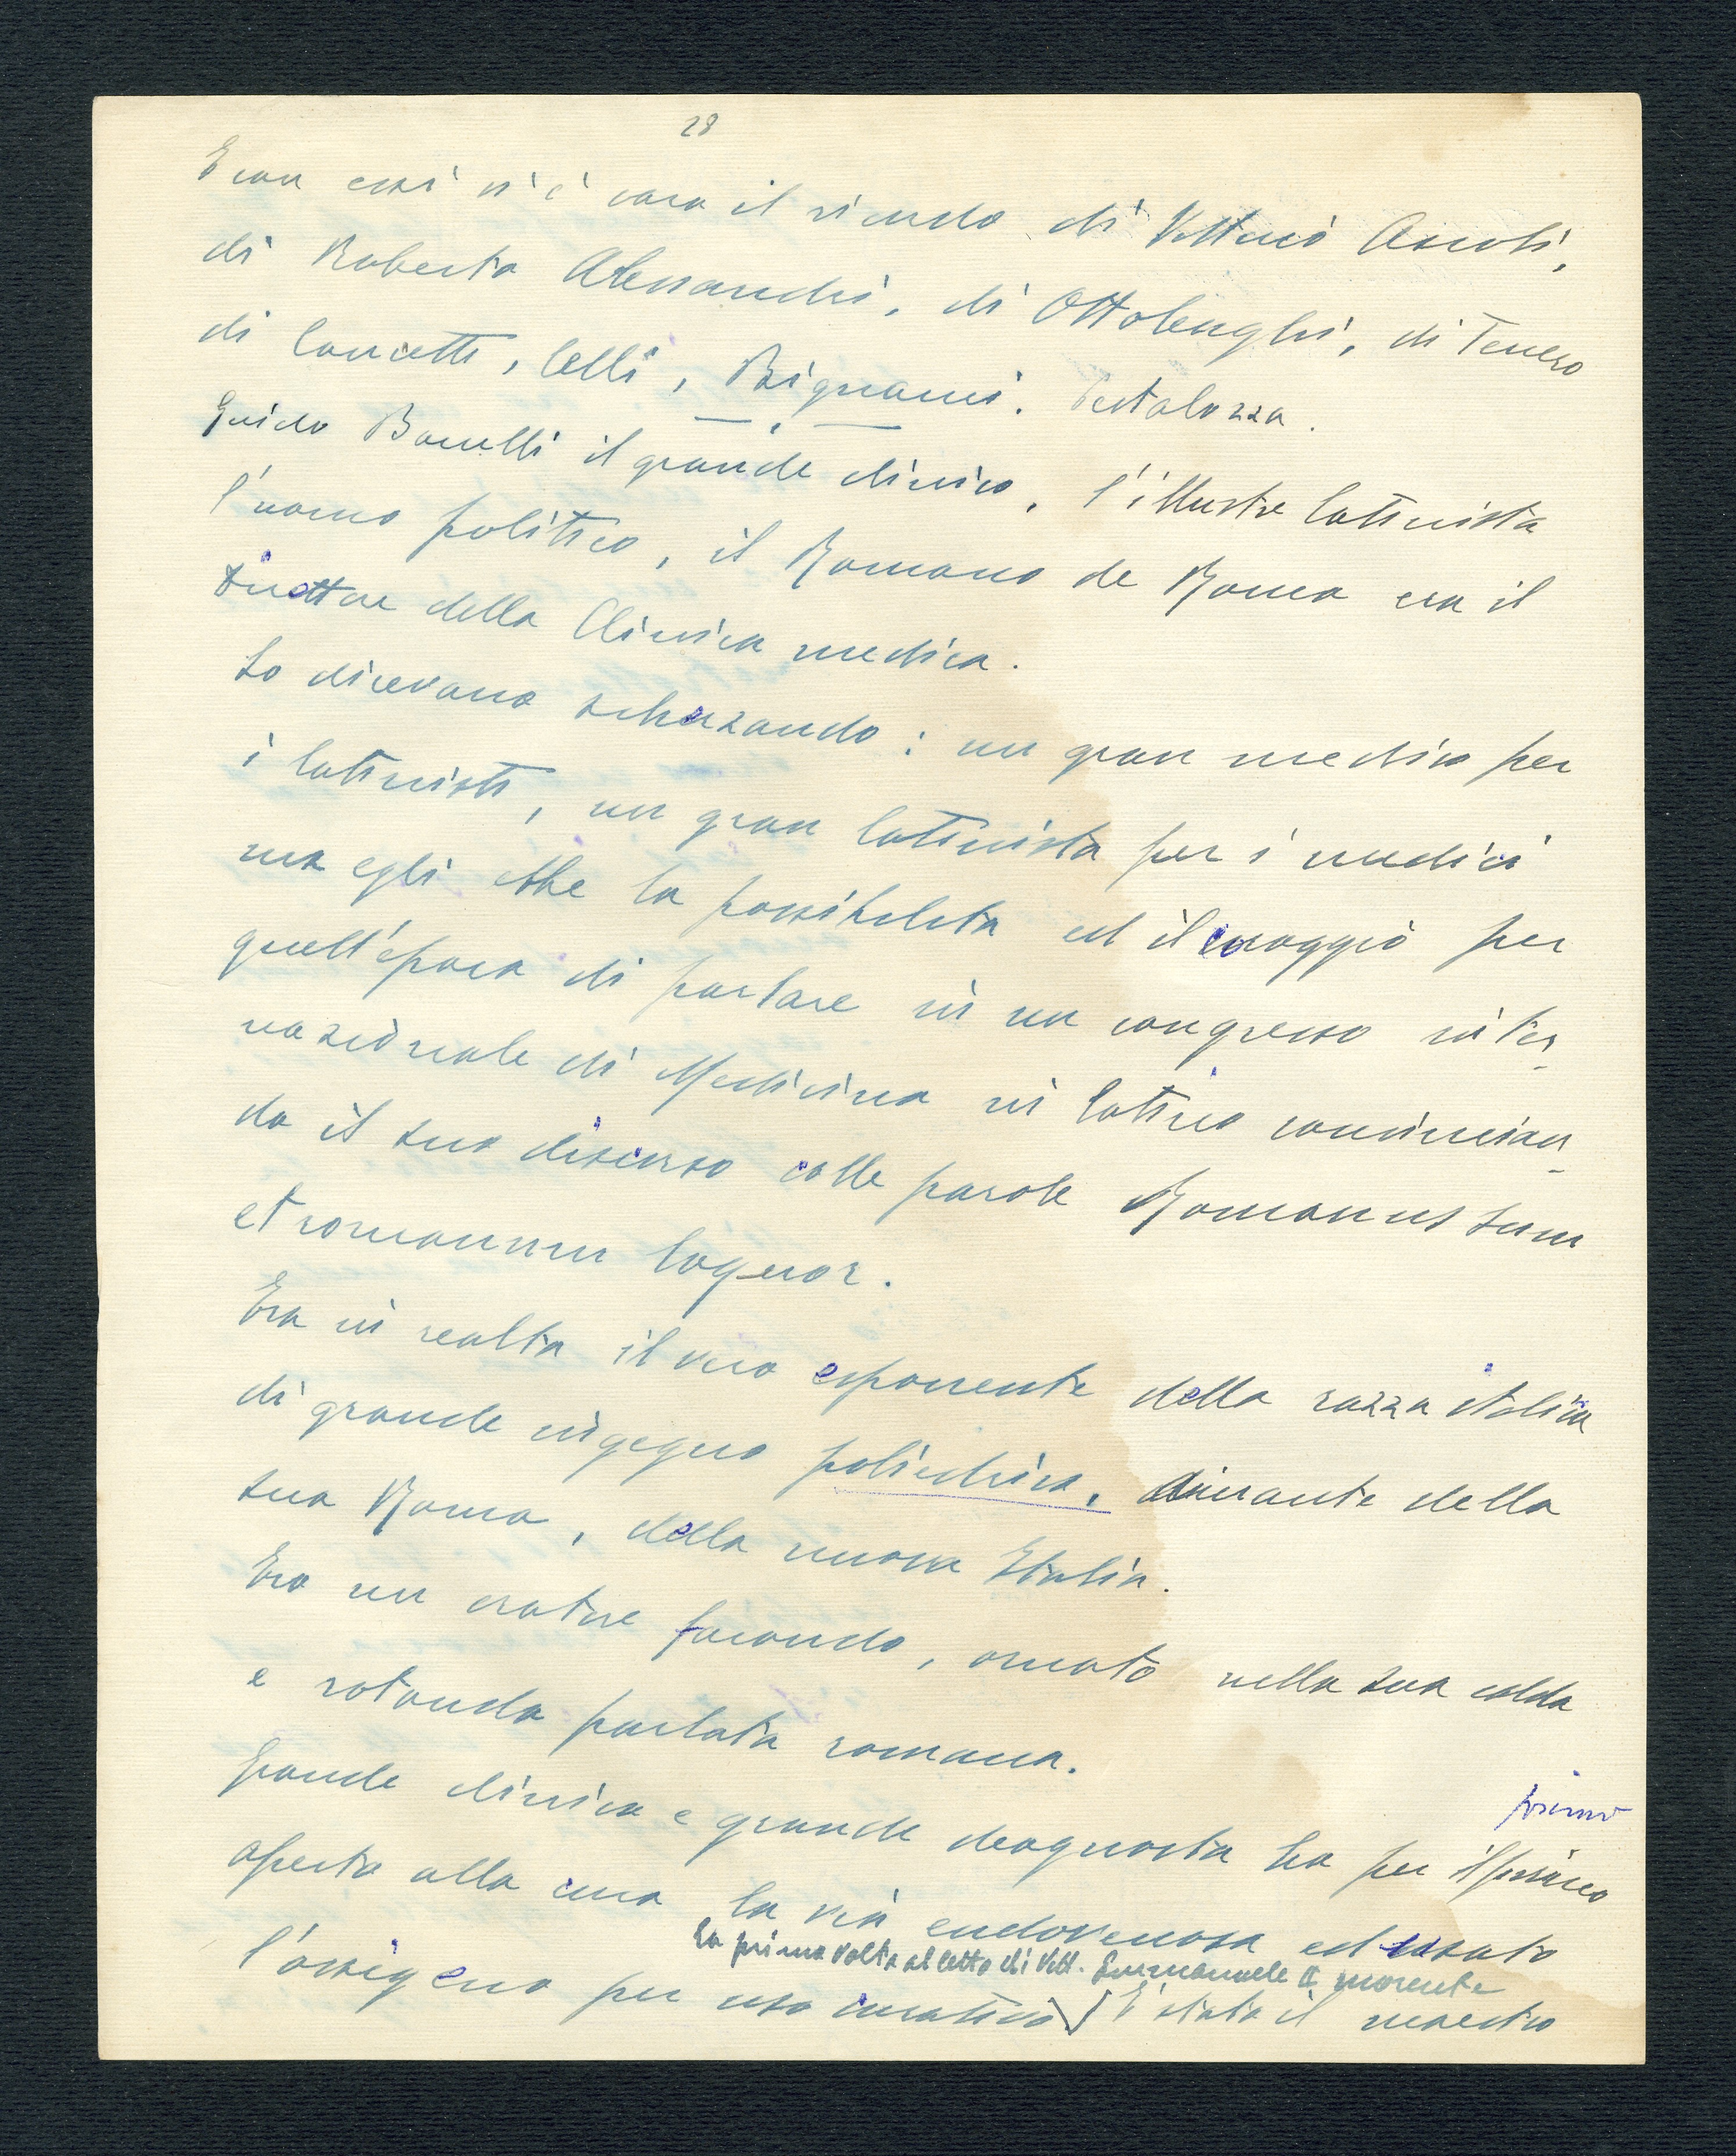 28
E con essi vi è caro il ricordo di Vittorio Ascoli,
di Roberto Alessandri, di Ottolenghi, di
di Concetti, Celli, Bignami. Pestalozza.
Guido Baccelli il grande clinico, l'illustre latinista
l'uomo politico, il Romano de Roma era il
Direttore della Clinica medica.
Lo dicevano scherzando: un gran medico per
i latinisti, un gran latinista per i medici
ma egli ebbe la possibilita ed il coraggio per
quell'epoca di parlare in un congresso inter-
nazionale di Medicina in latino comincian-
do il suo discorso colle parole Romanus sum
et romanum loquor.
Era in realta il vero esponente della razza italica
di grande ingegno poliedrico, amante della
sua Roma, della nuova Italia.
Era un oratore facondo, ornato nella sua calda
e rotonda parlata romana.
primo
Grande clinico e grande diagnosta ha per il primo
aperta alla cura la via endovenosa ed usato
la prima volta al letto di Vitt. Emmanuele II morente
l'ossigeno per uso curativo E' stato il maestro